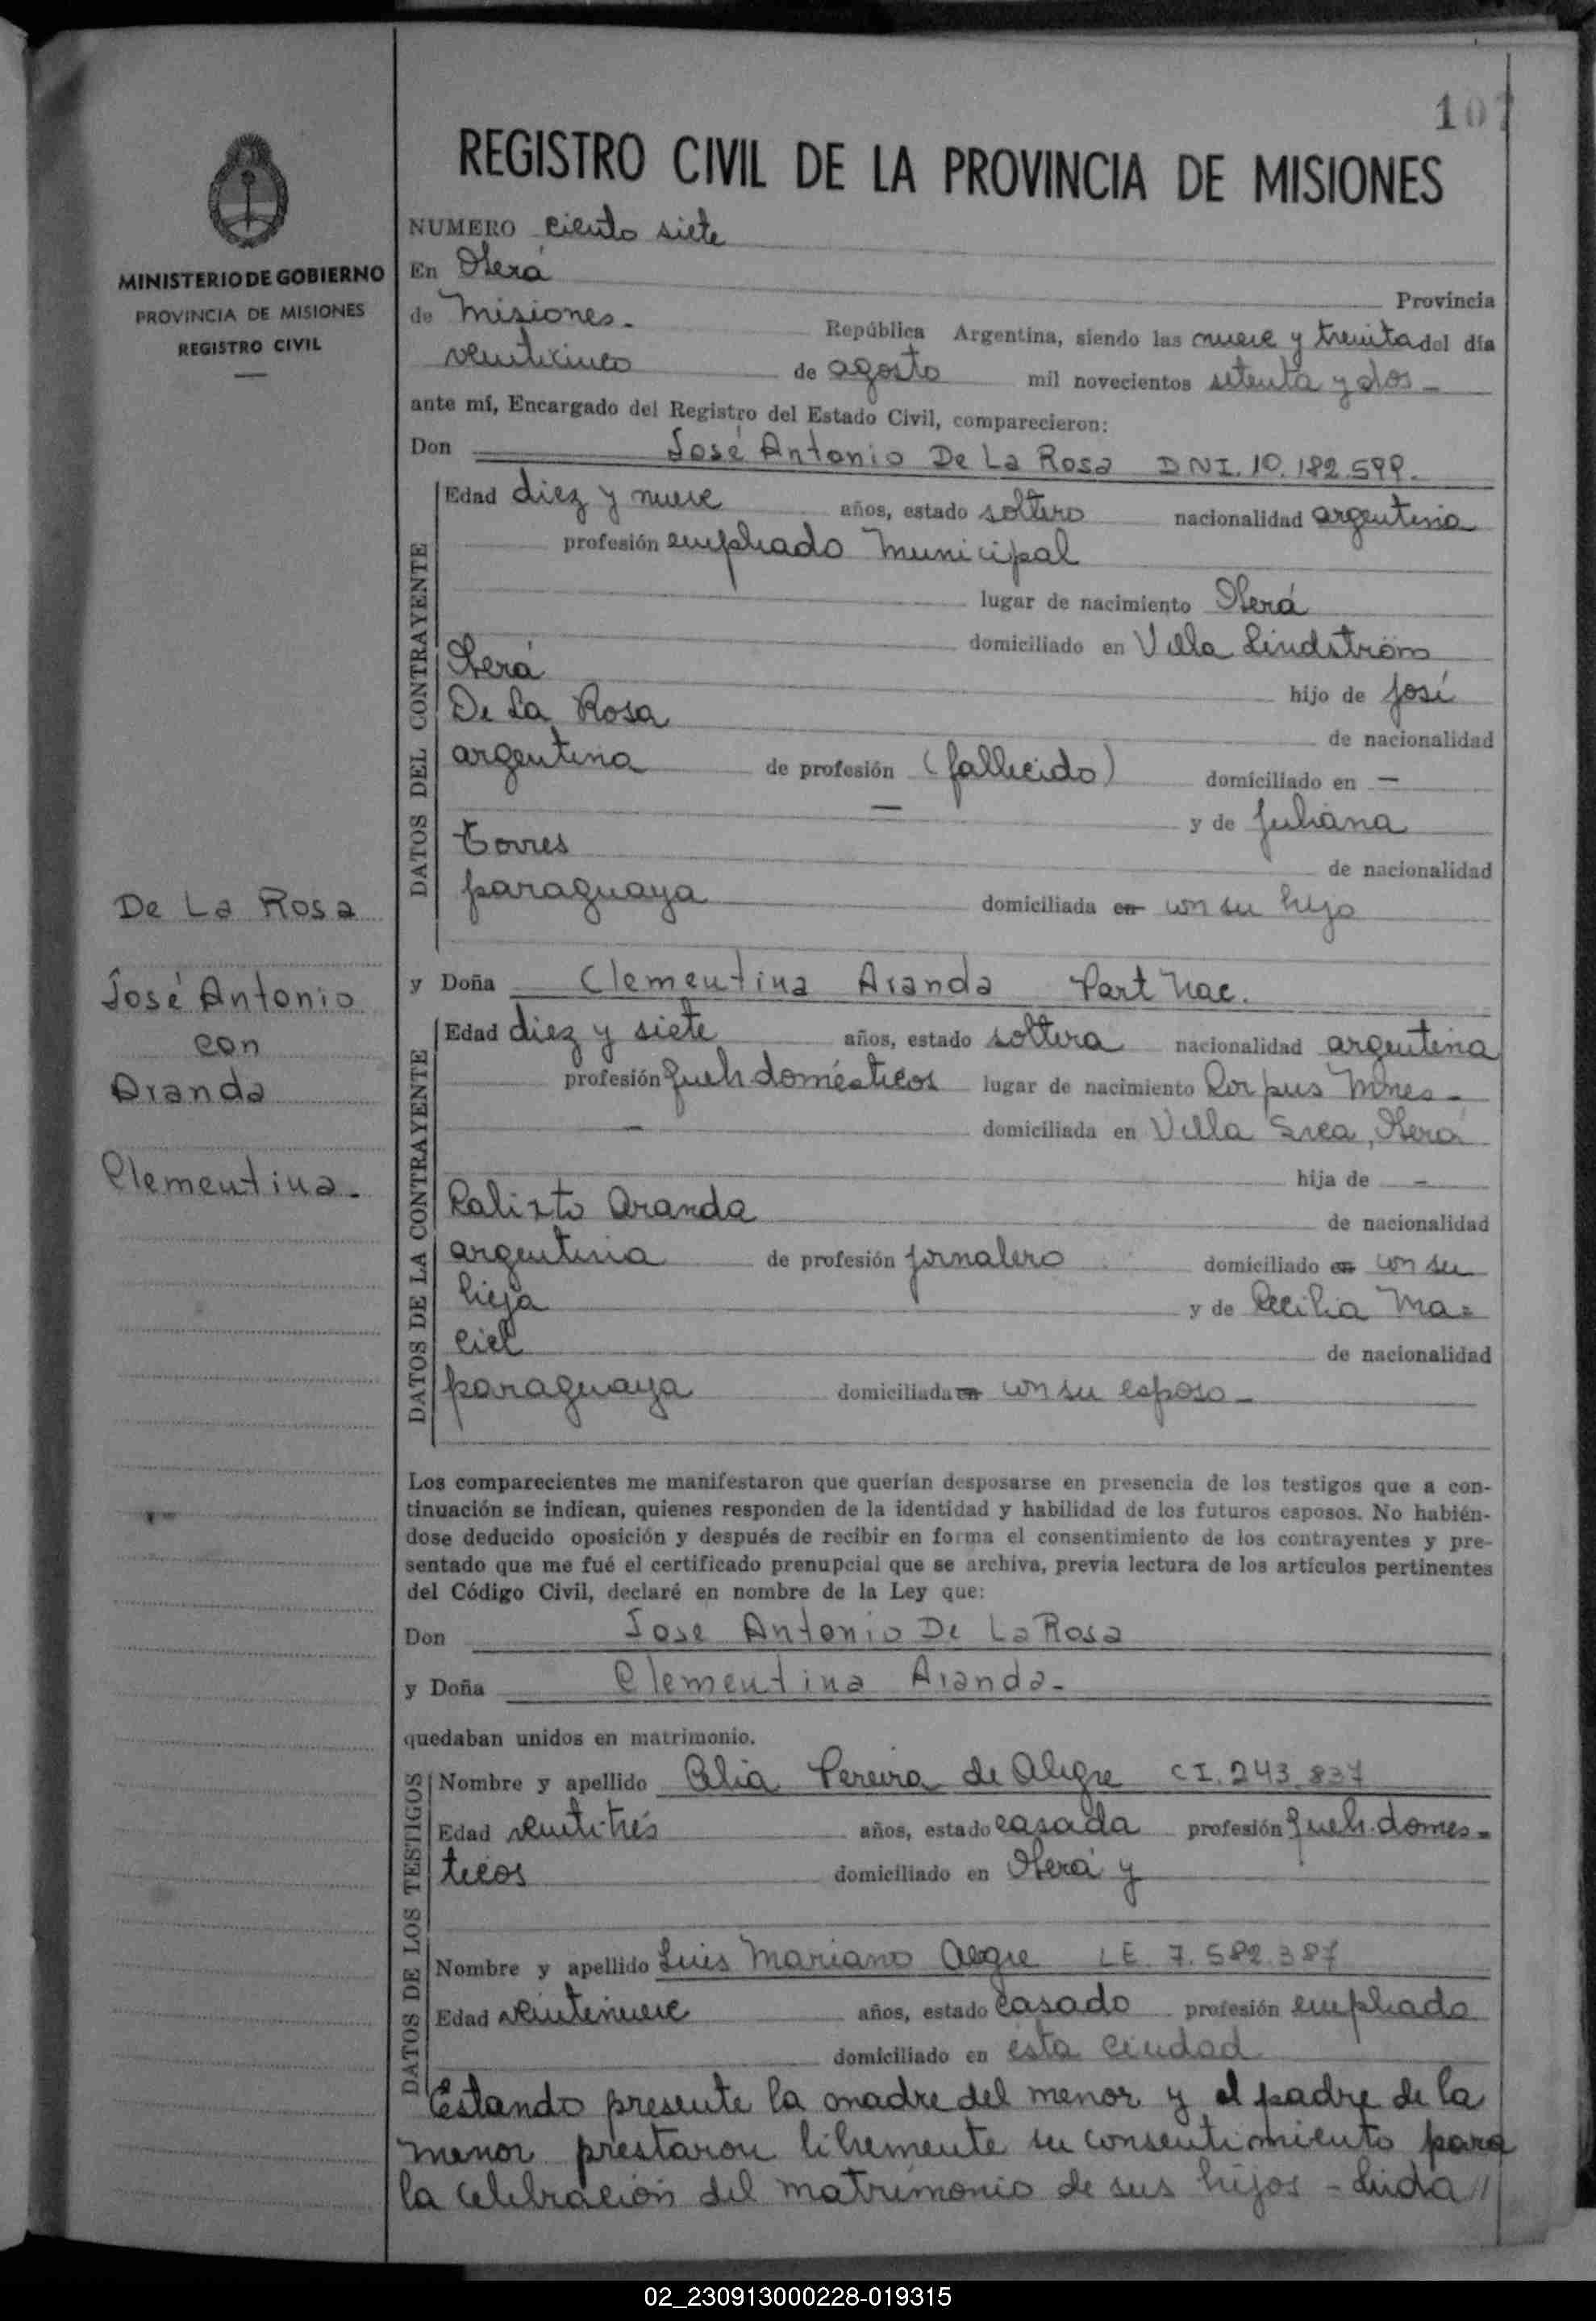 107
REGISTRO CIVIL DE LA PROVINCIA DE MISIONES
MINISTERIO DE GOBIERNO
PROVINCIA DE MISIONES
REGISTRO CIVIL
De La Rosa
José Antonio
con
Aranda
Clementina.
NUMERO ciento siete
En Oberá Provincia
de Misiones. República Argentina, siendo las nueve y treinta del día
veinticinco de agosto mil novecientos setenta y dos
ante mí, Encargado del Registro del Estado Civil, comparecieron:
Don José Antonio De La Rosa DNI. 10.182.599.
DATOS DEL CONTRAYENTE
Edad diez y nueve años, estado soltero nacionalidad argentina
profesión empleado Municipal
lugar de nacimiento Oberá
domiciliado en Villa Lindström
Oberá hijo de José
De La Rosa de nacionalidad
argentina de profesión (fallecido) domiciliado en —
— y de Juliana
Torres de nacionalidad
paraguaya domiciliada en con su hijo
y Doña Clementina Aranda Part Nac.
DATOS DE LA CONTRAYENTE
Edad diez y siete años, estado soltera nacionalidad argentina
profesión queh. domésticos lugar de nacimiento Corpus Mnes -
— domiciliada en Villa Svea, Oberá
hija de —
Calixto Aranda de nacionalidad
argentina de profesión jornalero domiciliado en con su
hija y de Cecilia Ma=
ciel de nacionalidad
paraguaya domiciliada en con su esposo -
Los comparecientes me manifestaron que querían desposarse en presencia de los testigos que a con-
tinuación se indican, quienes responden de la identidad y habilidad de los futuros esposos. No habién-
dose deducido oposición y después de recibir en forma el consentimiento de los contrayentes y pre-
sentado que me fué el certificado prenupcial que se archiva, previa lectura de los artículos pertinentes
del Código Civil, declaré en nombre de la Ley que:
Don Jose Antonio De La Rosa
y Doña Clementina Aranda-
quedaban unidos en matrimonio.
DATOS DE LOS TESTIGOS
Nombre y apellido Celia Pereira de Alegre CI. 243.837
Edad veintitrés años, estado casada profesión queh. domes=
ticos domiciliado en Oberá y
Nombre y apellido Luis Mariano Alegre LE 7.582.387
Edad veintinueve años, estado casado profesión empleado
domiciliado en esta ciudad
Estando presente la madre del menor y el padre de la
menor prestaron libremente su consentimiento para
la celebración del matrimonio de sus hijos - Leída //
02_230913000228-019315